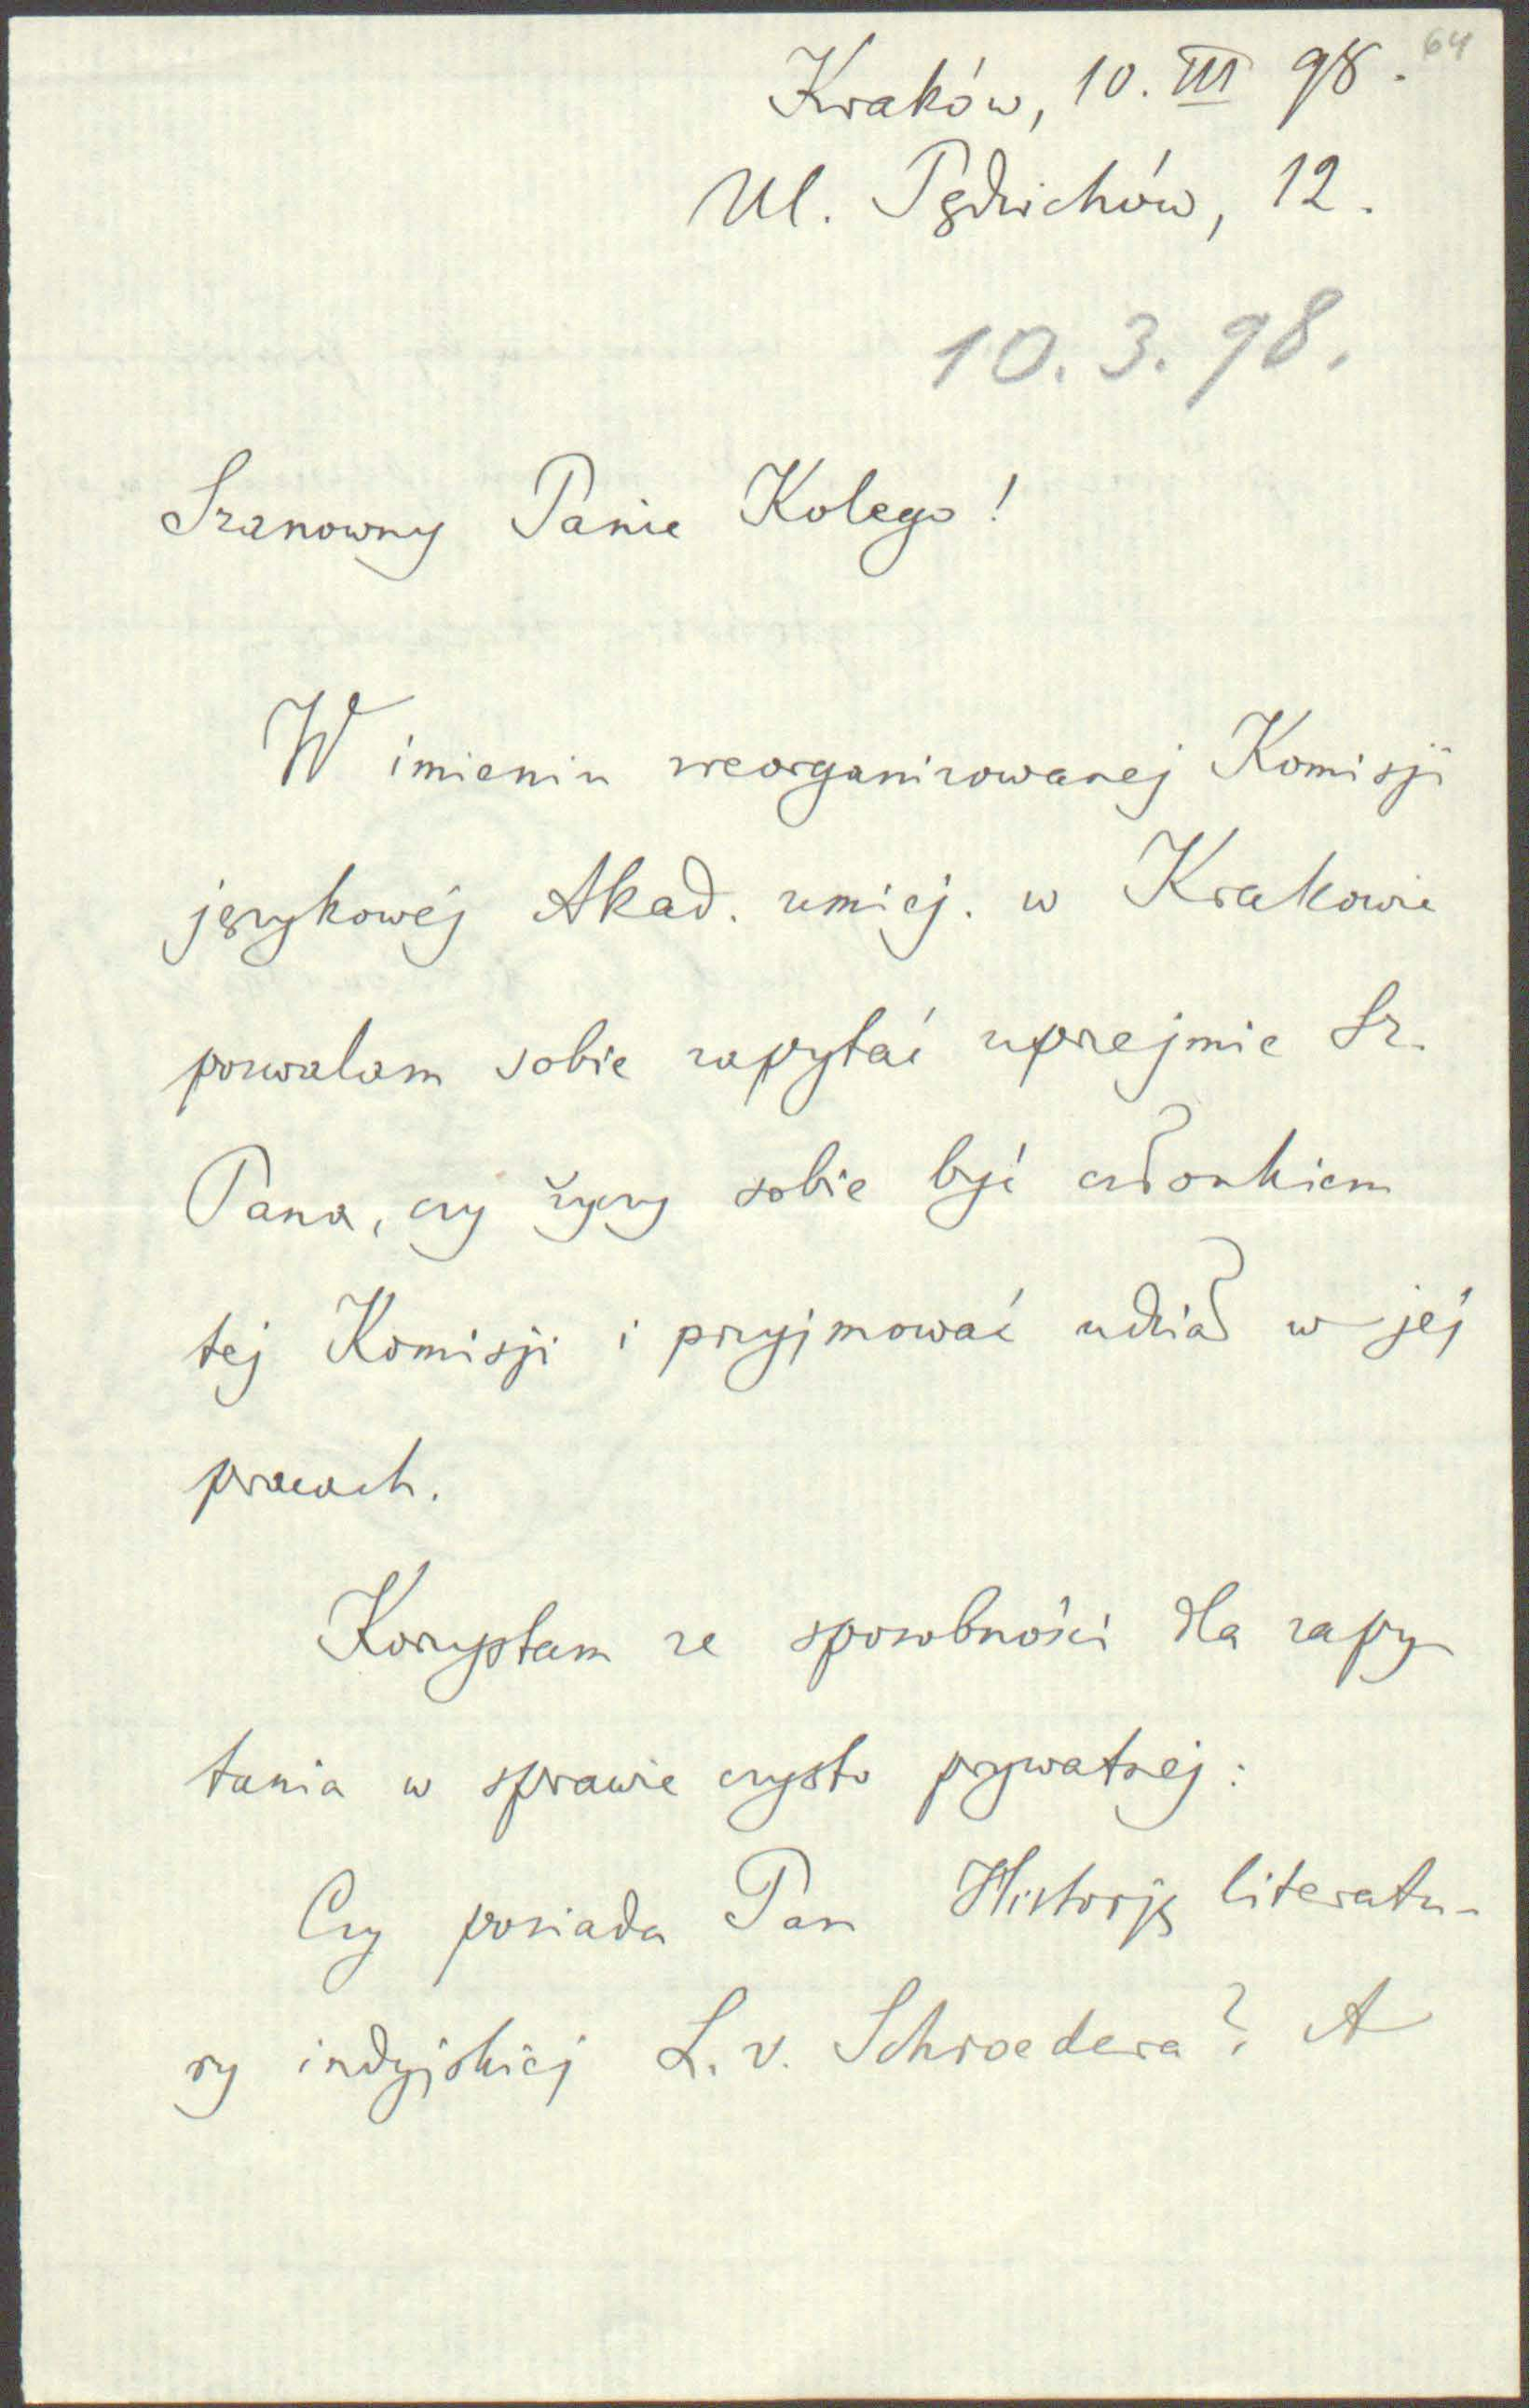 64
Kraków, 10. III 98.
Ul. Pędzichów, 12.
10. 3. 98.
Szanowny Panie Kolego!
W imieniu zreorganizowanej Komisji
językowéj Akad. umiej. w Krakowie
pozwalam sobie zapytać uprzejmie Sz.
Pana, czy życzy sobie być członkiem
tej Komisji i przyjmować udział w jéj
pracach.
Korzystam ze sposobności dla zapy
tania w sprawie czysto prywatnej:
Czy posiada Pan Historję literatu-
ry indyjskiej L. v. Schroedera? A